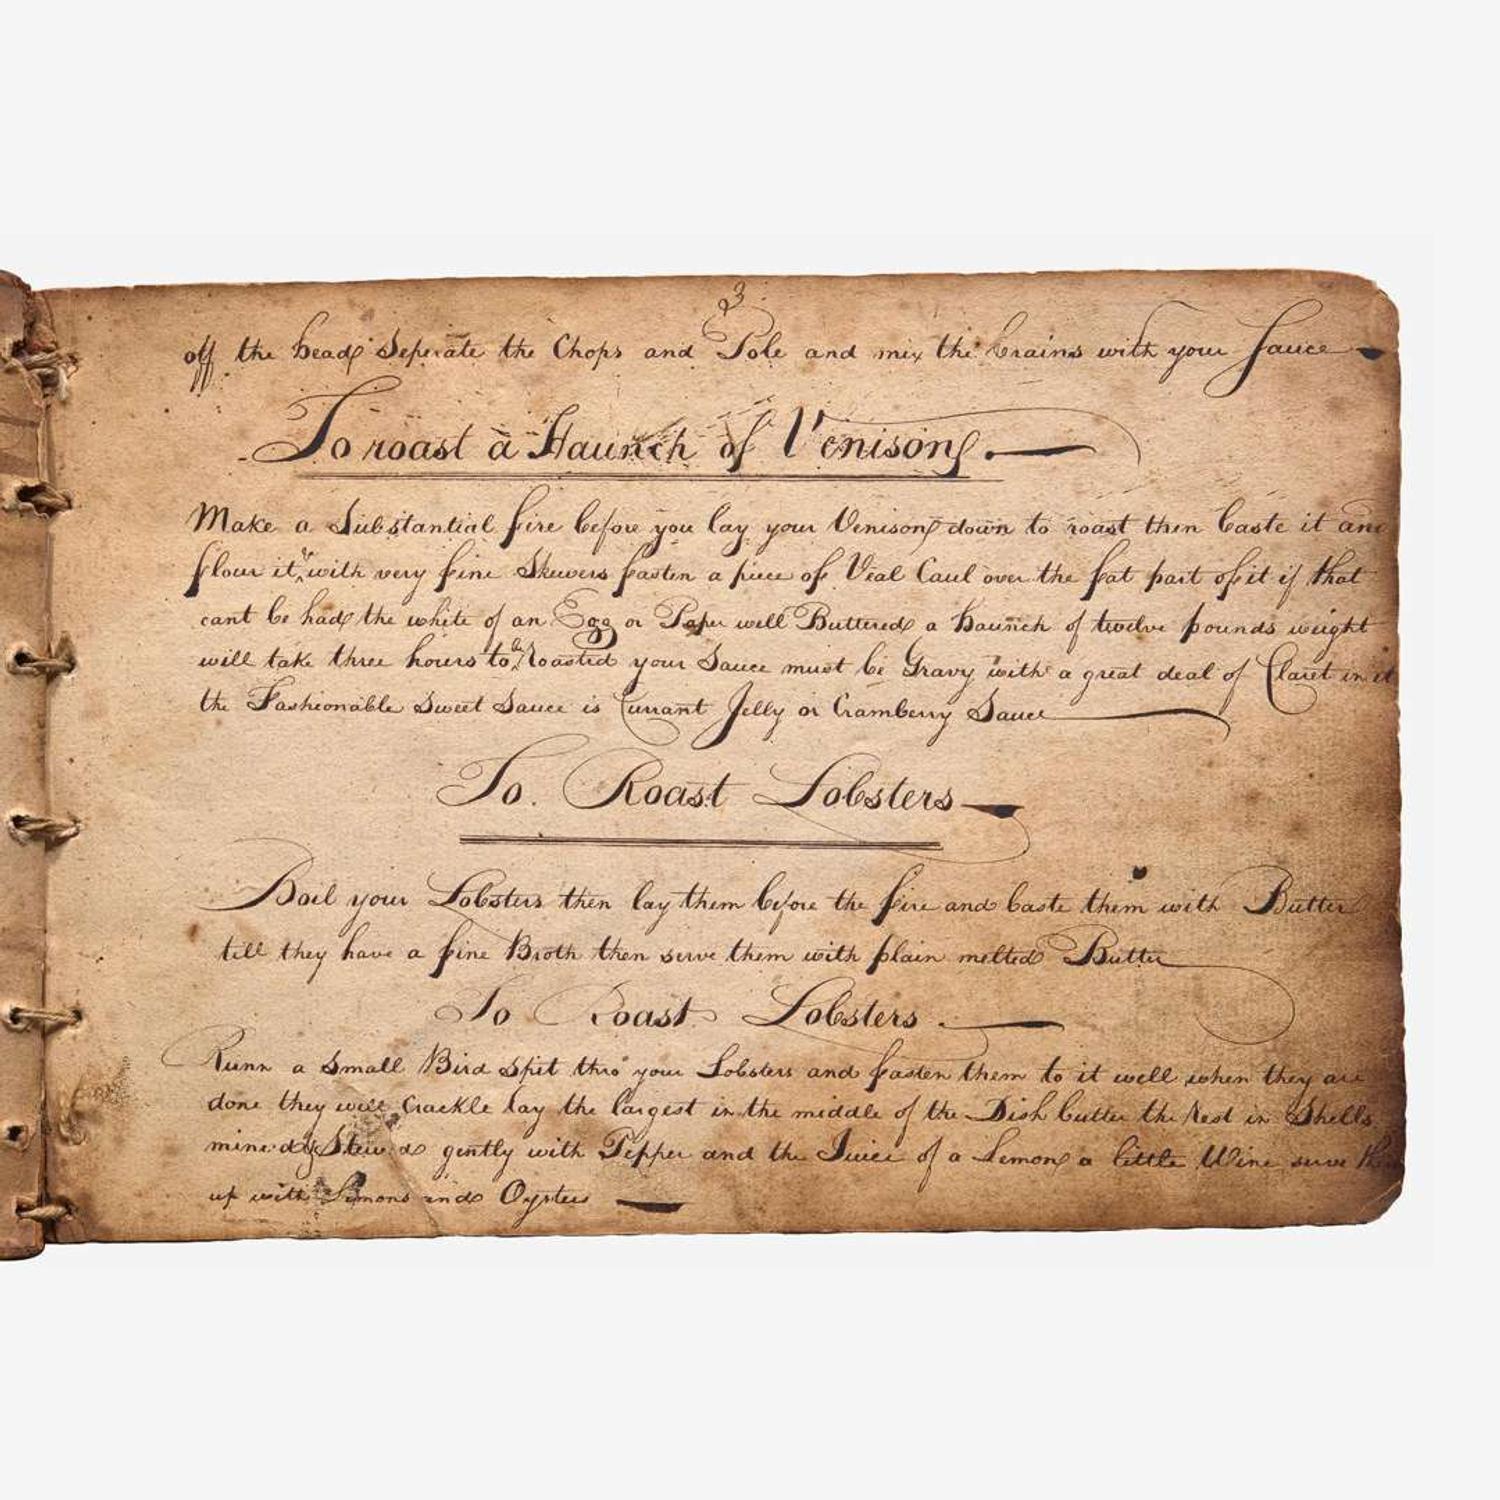 3
off the head Seperate the Chops and Pole and mix the brains with your Sauce
To roast a Haunch of Venison.
Make a Substantial fire before you lay your Venison down to roast then baste it and
flour it & with very fine Skewers fasten a piece of Veal Caul over the fat part of it if that
cant be had the white of an Egg or Paper well Buttered a haunch of twelve pounds weight
will take three hours to be Roasted your Sauce must be Gravy with a great deal of Claret in it
the Fashionable Sweet Sauce is Currant Jelly or Cramberry Sauce
To. Roast Lobsters
Boil your Lobsters then lay them before the fire and baste them with Butter
till they have a fine Broth then serve them with plain melted Butter
To Roast Lobsters.
Runn a Small Bird Spit thro' your Lobsters and fasten them to it well when they are
done they will Crackle lay the largest in the middle of the Dish butter the Rest in Shells
mine'd & Stew'd gently with Pepper and the Juice of a Lemon a little Wine serve them
up with Limons and Oysters